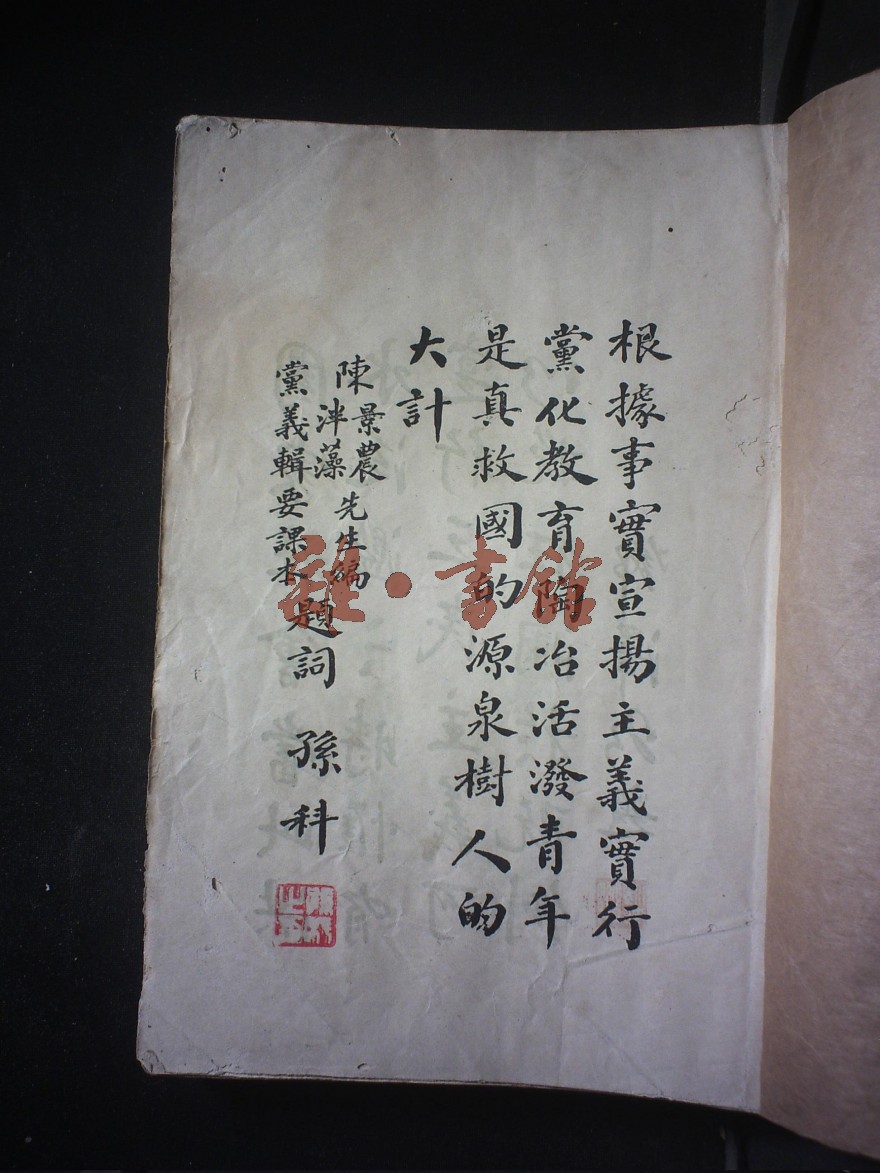 根據事實宣揚主義實行
黨化教育陶冶活潑青年
是真救國的源泉樹人的
大計
陳景農
泮藻
先生編
黨義輯要課本
題詞
孫科
雜·書館